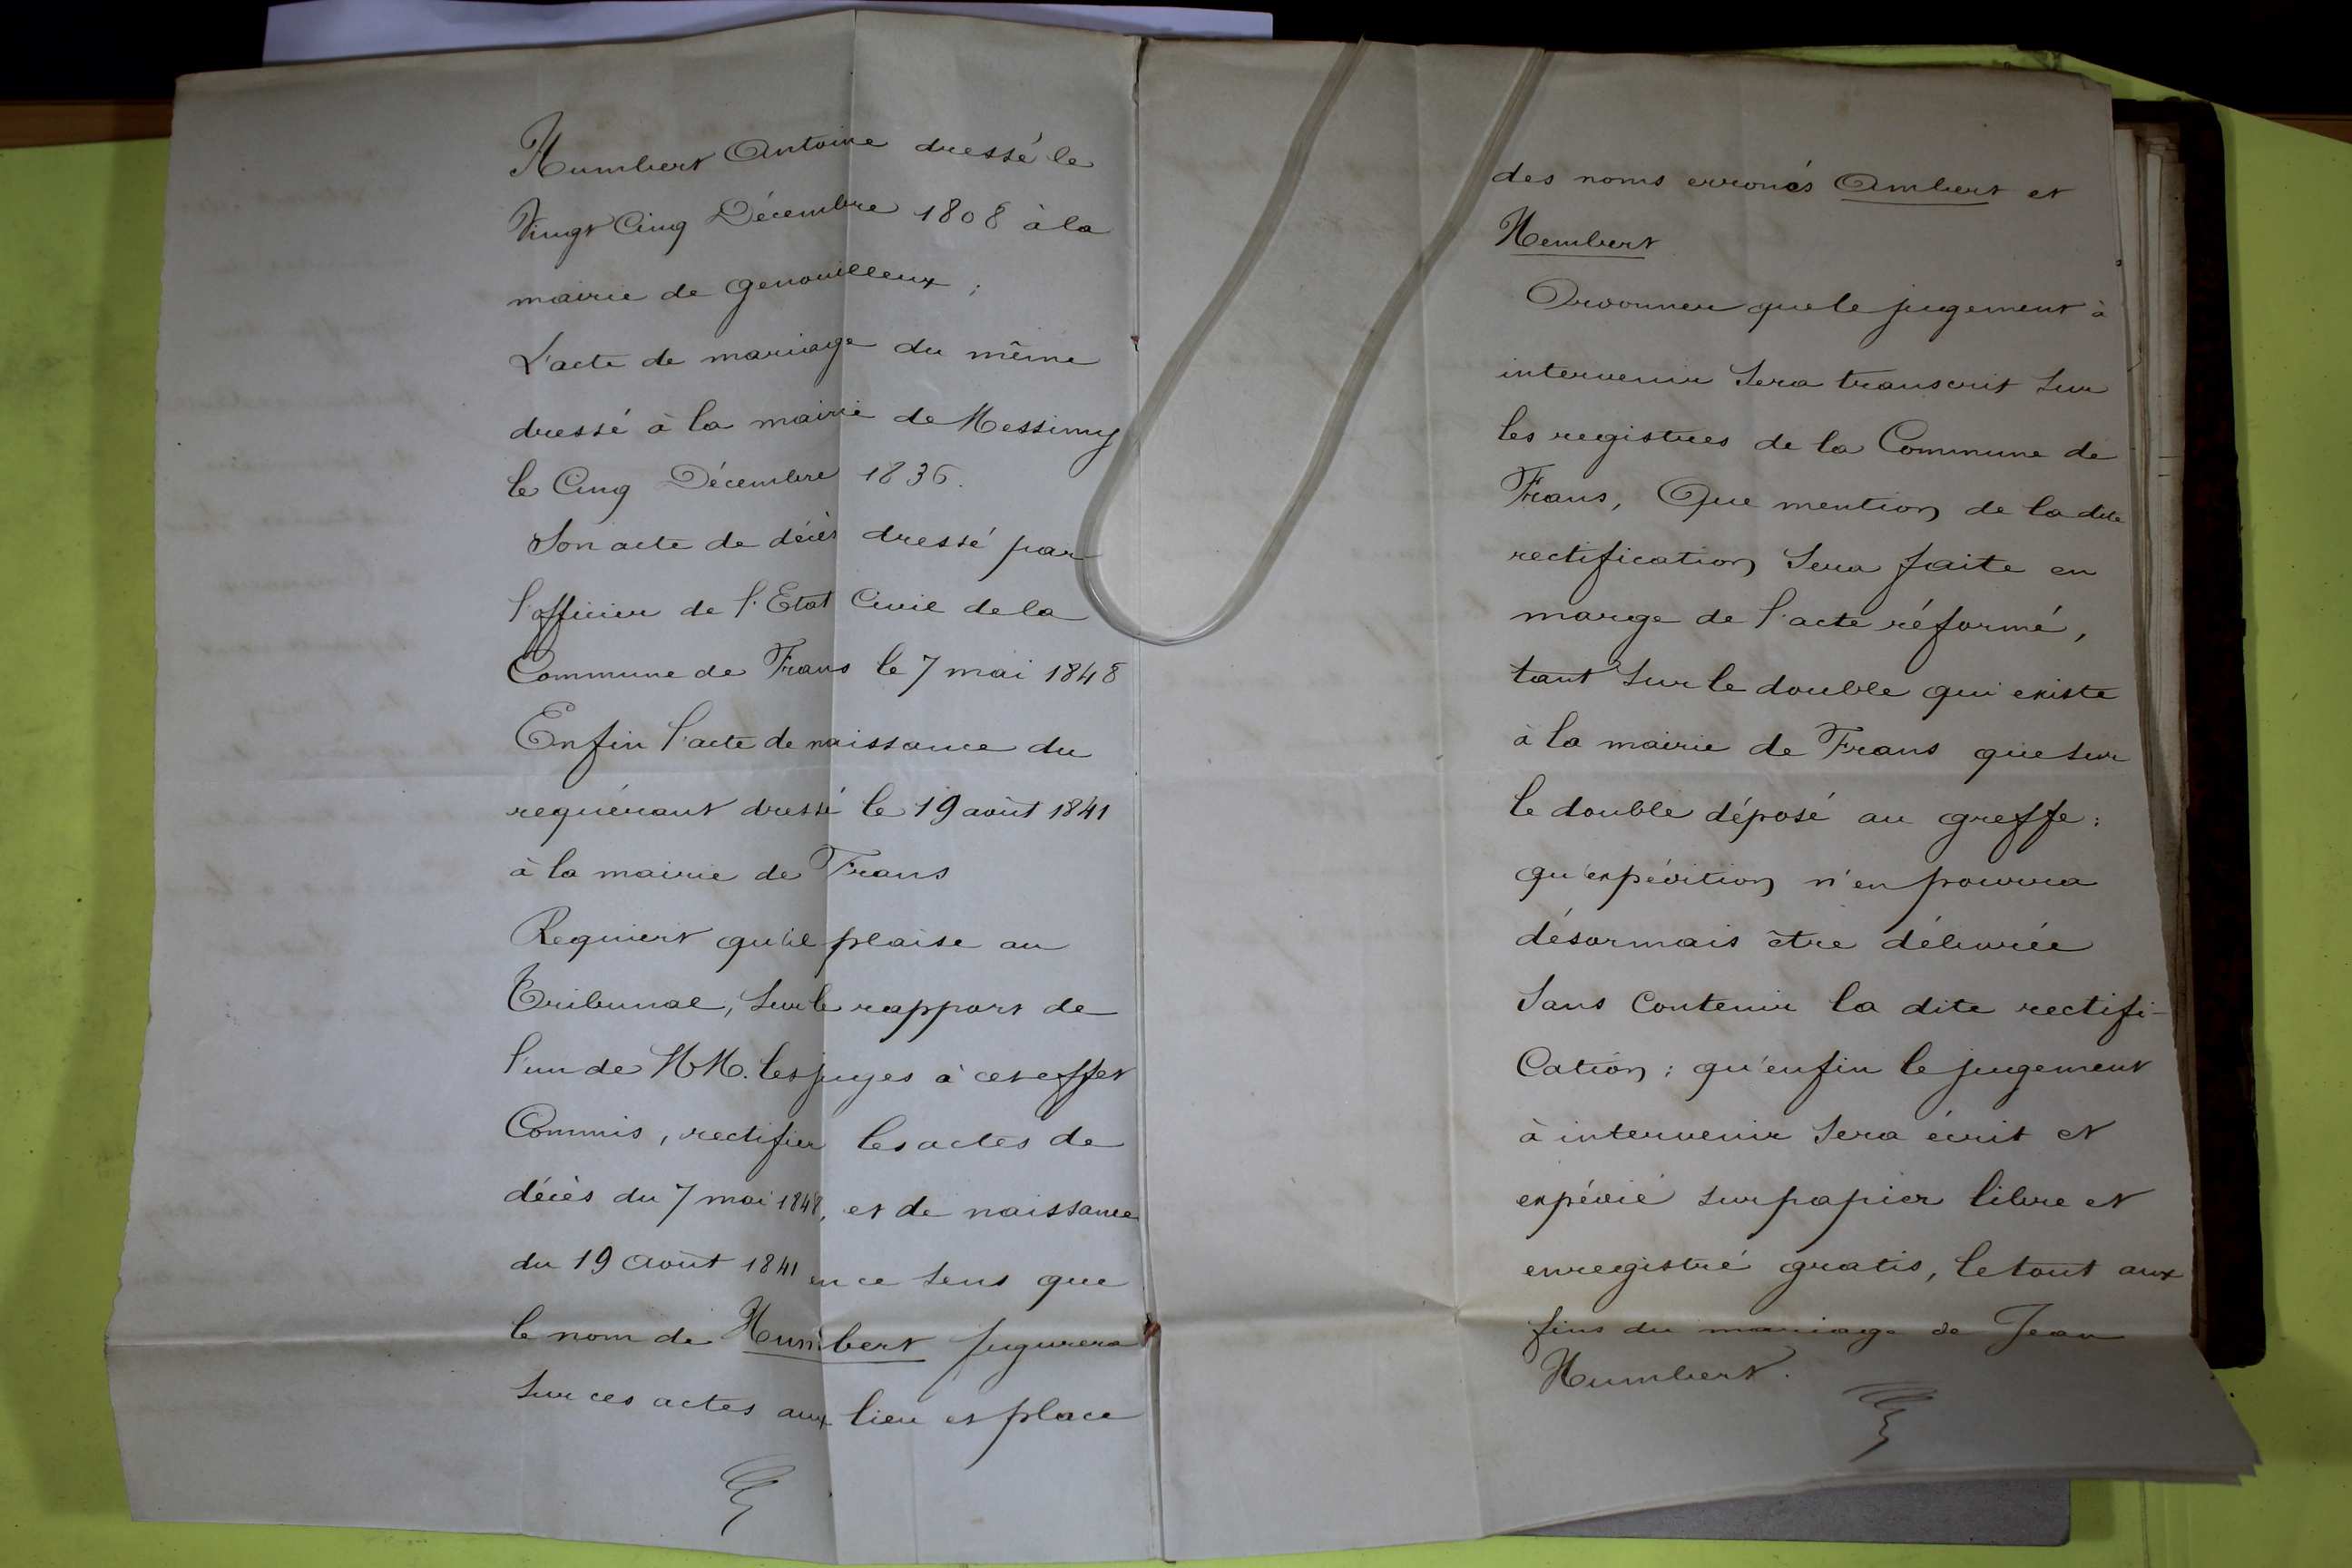 Humbert Antoine dressé le
Vingt Cinq Décembre 1808 à la
mairie de Genouilleux ;
L'acte de mariage du même
dressé à la mairie de Messimy
le Cinq Décembre 1836.
Son acte de décès dressé par
l'officier de l'Etat Civil de la
Commune de Frans le 7 mai 1848
Enfin l'acte de naissance du
requérant dressé le 19 août 1841
à la mairie de Frans
Requiert qu'il plaise au
Tribunal, sur le rapport de
l'un de MM. les juges à cet effet
Commis, rectifier les actes de
décès du 7 mai 1848, et de naissance
du 19 Août 1841 en ce sens que
le nom de Humbert figurera
sur ces actes aux lieu et place
des noms erronés Ambert et
Hembert
Ordonner que le jugement à
intervenir sera transcrit sur
les registres de la Commune de
Frans, Que mention de la dite
rectification sera faite en
marge de l'acte réformé,
tant sur le double qui existe
à la mairie de Frans que sur
le double déposé au greffe :
qu'expédition n'en pourra
désormais être délivrée
sans contenir la dite rectifi-
cation : qu'enfin le jugement
à intervenir sera écrit et
expédié sur papier libre et
enregistré gratis, le tout aux
fins du mariage de Jean
Humbert.